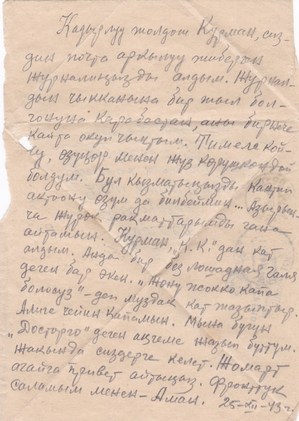 Кадырлуу жолдош Курман, сиз-
дин почта аркылуу жиберген
Журналыңызды алдым. Журнал-
дын чыкканына бир жыл бол-
гонуна карабастан, аны бир нече
кайта окуп чыктым.
өзүңөр менен жүз көрүшкөндөй
болдум. Бул кызматыңызды кантип
актоону өзүм да билбеймин... Азырын-
ча жүрөк рахматтарымды гана
айтамын. Курман, "К.К." дан кат
алдым. Анда бир без лошадная Галя
деген бар экен. "Жону жокко капа
болосуз" деп муздак кат жазыптыр.
Алиге чейин капамын. Мына бүгүн
"Досторго" деген аңгеме жазып бүттүм.
Жакында сиздерге келет. Жомарт
агайга привет айтыңыз. Фронттук
саламым менен - Аман. 25-XII-43 г.